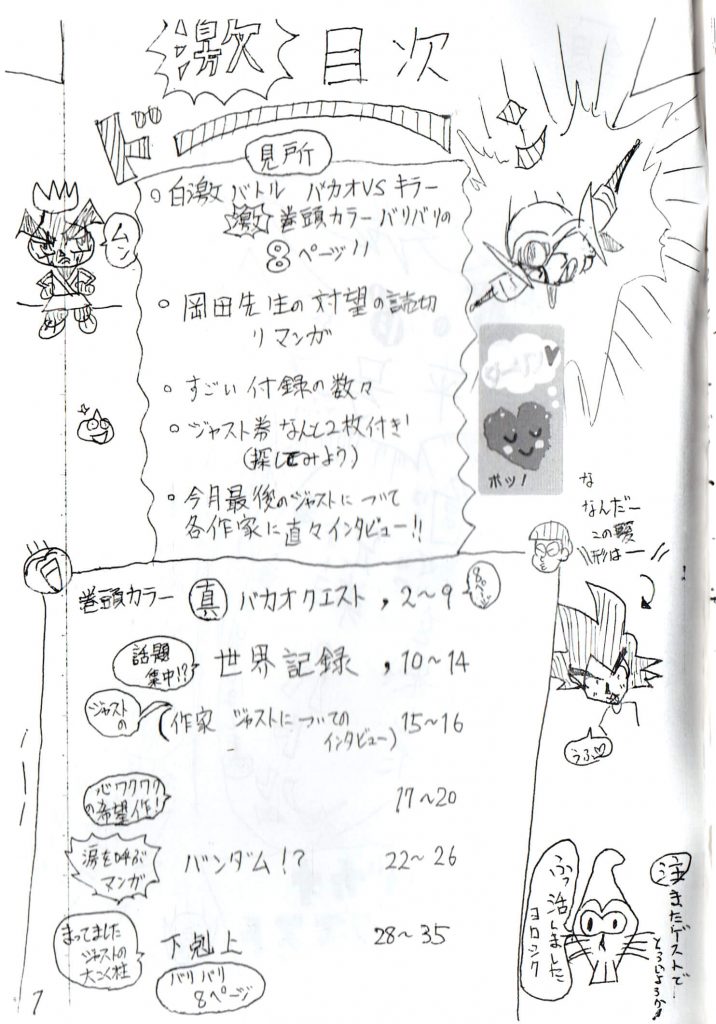 激 目次
見所
○白激バトル バカオVSキラー
激 巻頭カラーバリバリの
8ページ!!
○岡田先生の対望の読切
りマンガ
○すごい付録の数々
○ジャスト券なんと2枚付き!
(探してみよう)
○今月最後のジャストについて
各作家に直々インタビュー!!
ムン
ポッ!
な
なんだー
この髪
形はー!!
巻頭カラー 真 バカオクエスト , 2～9
話題
集中!?
世界記録 , 10～14
ジャスト
の
(作家 ジャストについての
インタビュー) 15～16
心ワクワク
の希望作! 17～20
涙を呼ぶ
マンガ
バンダム!? 22～26
まってました
ジャストの
大こく柱
下剋上 28～35
バリバリ
8ページ
うふ♡
ふっ活しました
ヨロシク
注 きたゲストで
7